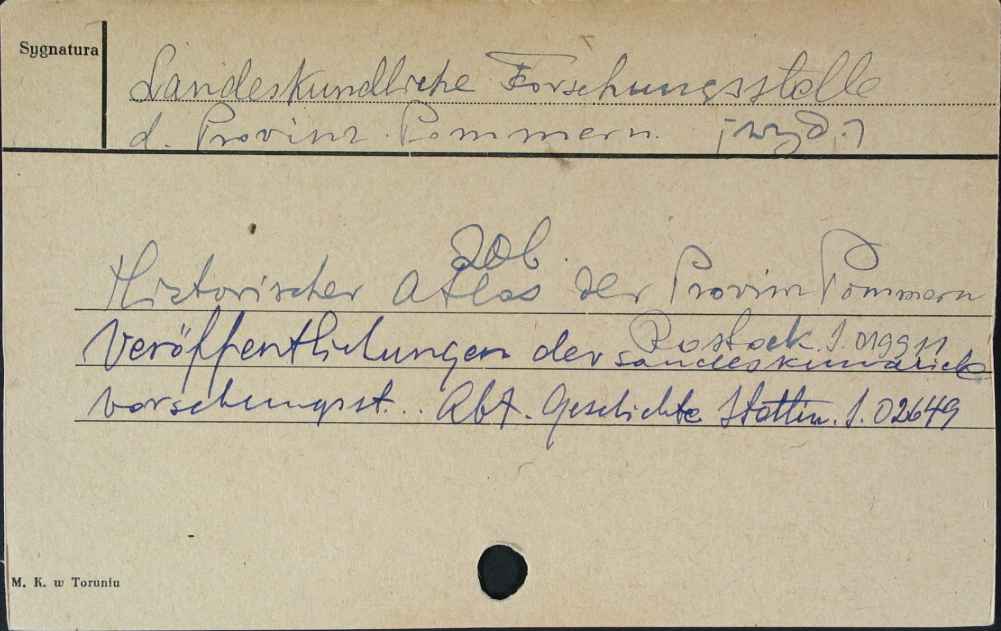 Sygnatura
Landeskundliche Forschungsstelle
d. Provinz Pommern. [wyd.]
zob.
Historischer Atlas der Provinz Pommern
Rostock. S. 01991
Veröffentlichungen der Landeskundlich
Vorschungsst.. Abt. Geschichte Stettin. S. 02649
M. K. w Toruniu